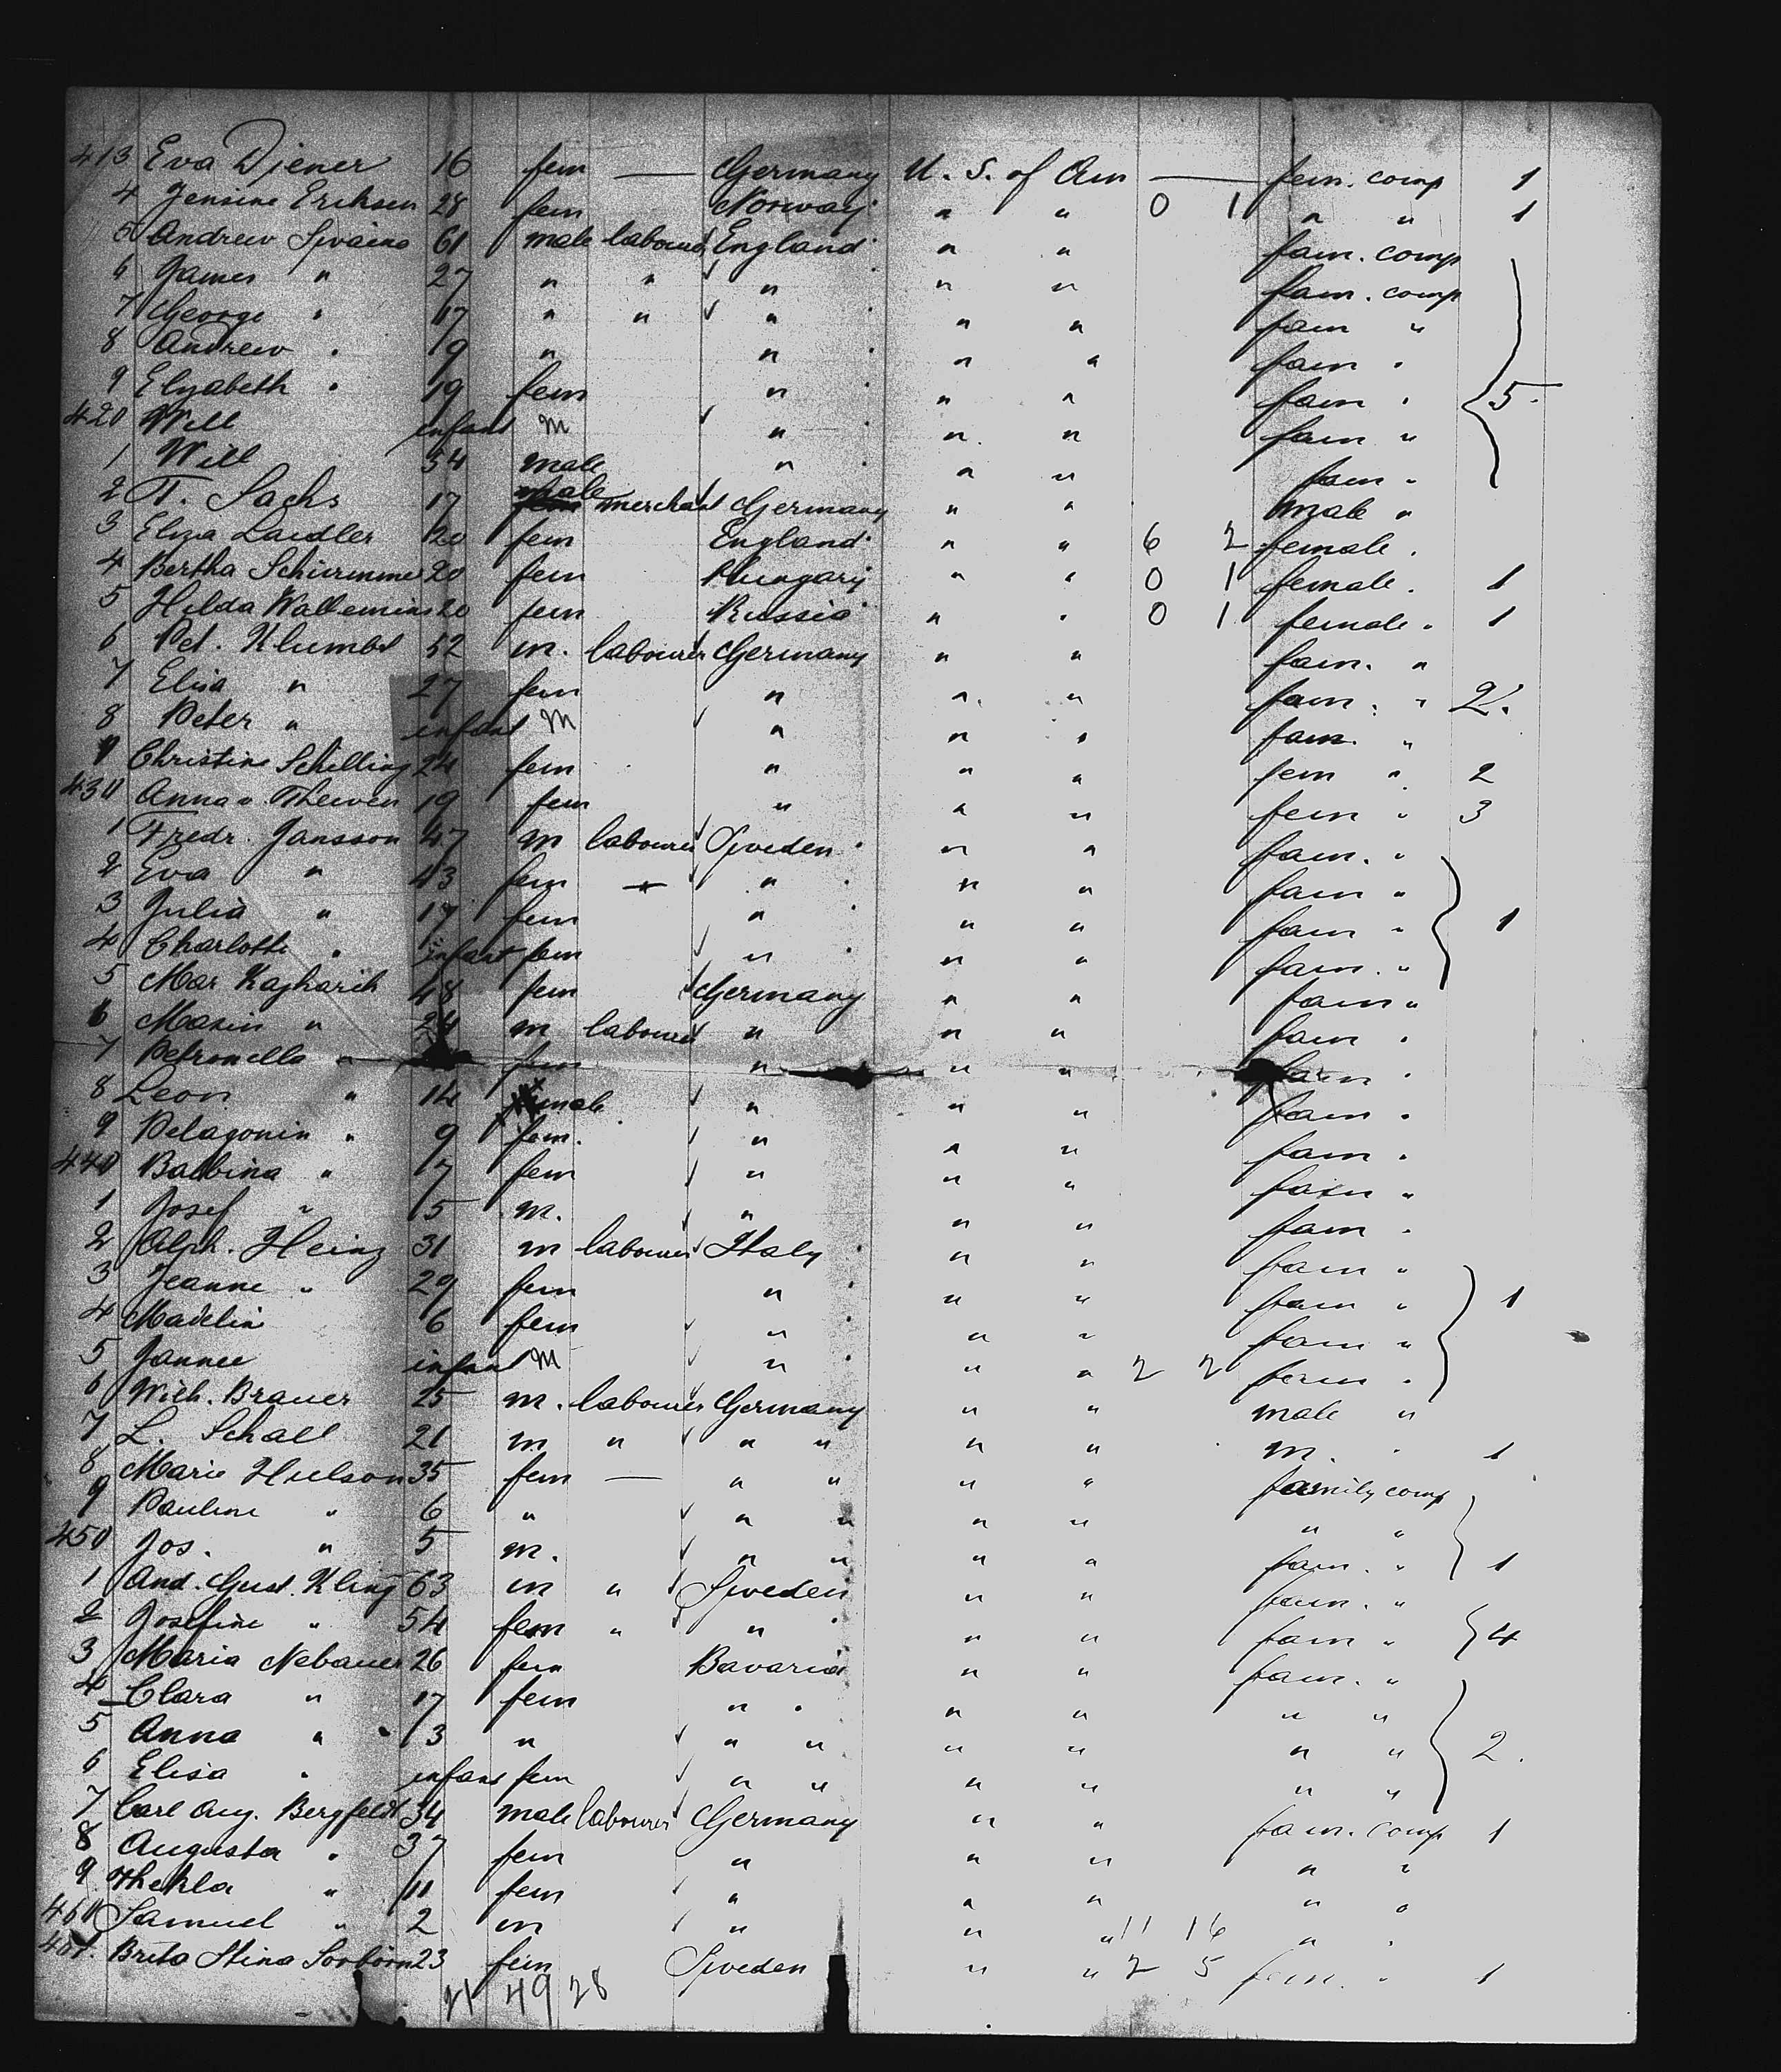 413 Eva Djener 16 fem — Germany U. S. of Am — fem. comp 1
4 Jensine Eriksen 28 fem Norway " " 0 1 " " 1
5 Andrew Swaine 61 male labourer England " " fam. comp
6 James " 27 " " " " " fam. comp
7 George " 17 " " " " " fam "
8 Andrew " 9 " " " " fam "
9 Elizabeth " 19 fem " " " fam " 5
420 Will infant m " " " fam "
1 Will 54 male " " " fam "
2 T. Sachs 17 male merchant Germany " " male "
3 Eliza Laidler 20 fem England " " 6 2 female "
4 Bertha Schirmmer 20 fem Hungary " " 0 1 female " 1
5 Hilda 20 fem Russia " " 0 1 female " 1
6 Pet. Klumbt 52 m. labourer Germany " " fam. "
7 Elisa " 27 fem " " " fam. " 2.
8 Peter " infant m " " " fam. "
9 Christine Schilling 24 fem " " " fem " 2
430 Anna v. 19 fem " " " fem " 3
1 Fredr. Jansson 47 m labourer Sweden " " fam. "
2 Eva " 43 fem — " " " fam "
3 Julia " 17 fem " " " fam " 1
4 Charlotte " infant fem " " " fam. "
5 Mar 48 fem Germany " " fam "
6 " 24 m labourer " " " fam "
7 Petronella " fem " " " fam "
8 Leon " 14 male " " " fam "
9 Pelagonin " 9 fem. " " " fam "
440 Balbina " 7 fem " " " fam "
1 Josef " 5 m. " " " fam "
2 Alph. Heinz 31 m labourer Italy " " fam "
3 Jeanne " 29 fem " " " fam " 1
4 Madelin 6 fem " " " fam "
5 Jannee infant m " " " 2 2 fam "
6 Wilh. Brauer 25 m. labourer Germany " " male "
7 L. Schall 21 m " " " " " m. " 1
8 Marie Hulson 35 fem — " " " " family comp
9 Pauline " 6 " " " " " " "
450 Jos. " 5 m. " " " " fam. " 1
1 And. Gust. Kling 63 m " Sweden " " fam. "
2 Josefine " 54 fem " " " " fam " 4
3 Maria Nebauer 26 fem Bavaria " " fam. "
4 Clara " 17 fem " " " " " "
5 Anna " 3 " " " " " " " 2.
6 Elisa " infant fem " " " " " "
7 Carl Aug. Bergfeldt 34 male labourer Germany " " fam. comp 1
8 Augusta " 37 fem " " " " "
9 Thekla " 11 fem " " " " "
460 Samuel " 2 m " " " 11 16 " "
461. Brita Stina Sorbörn 23 fem Sweden " " 2 5 fem. " 1
21 49 28